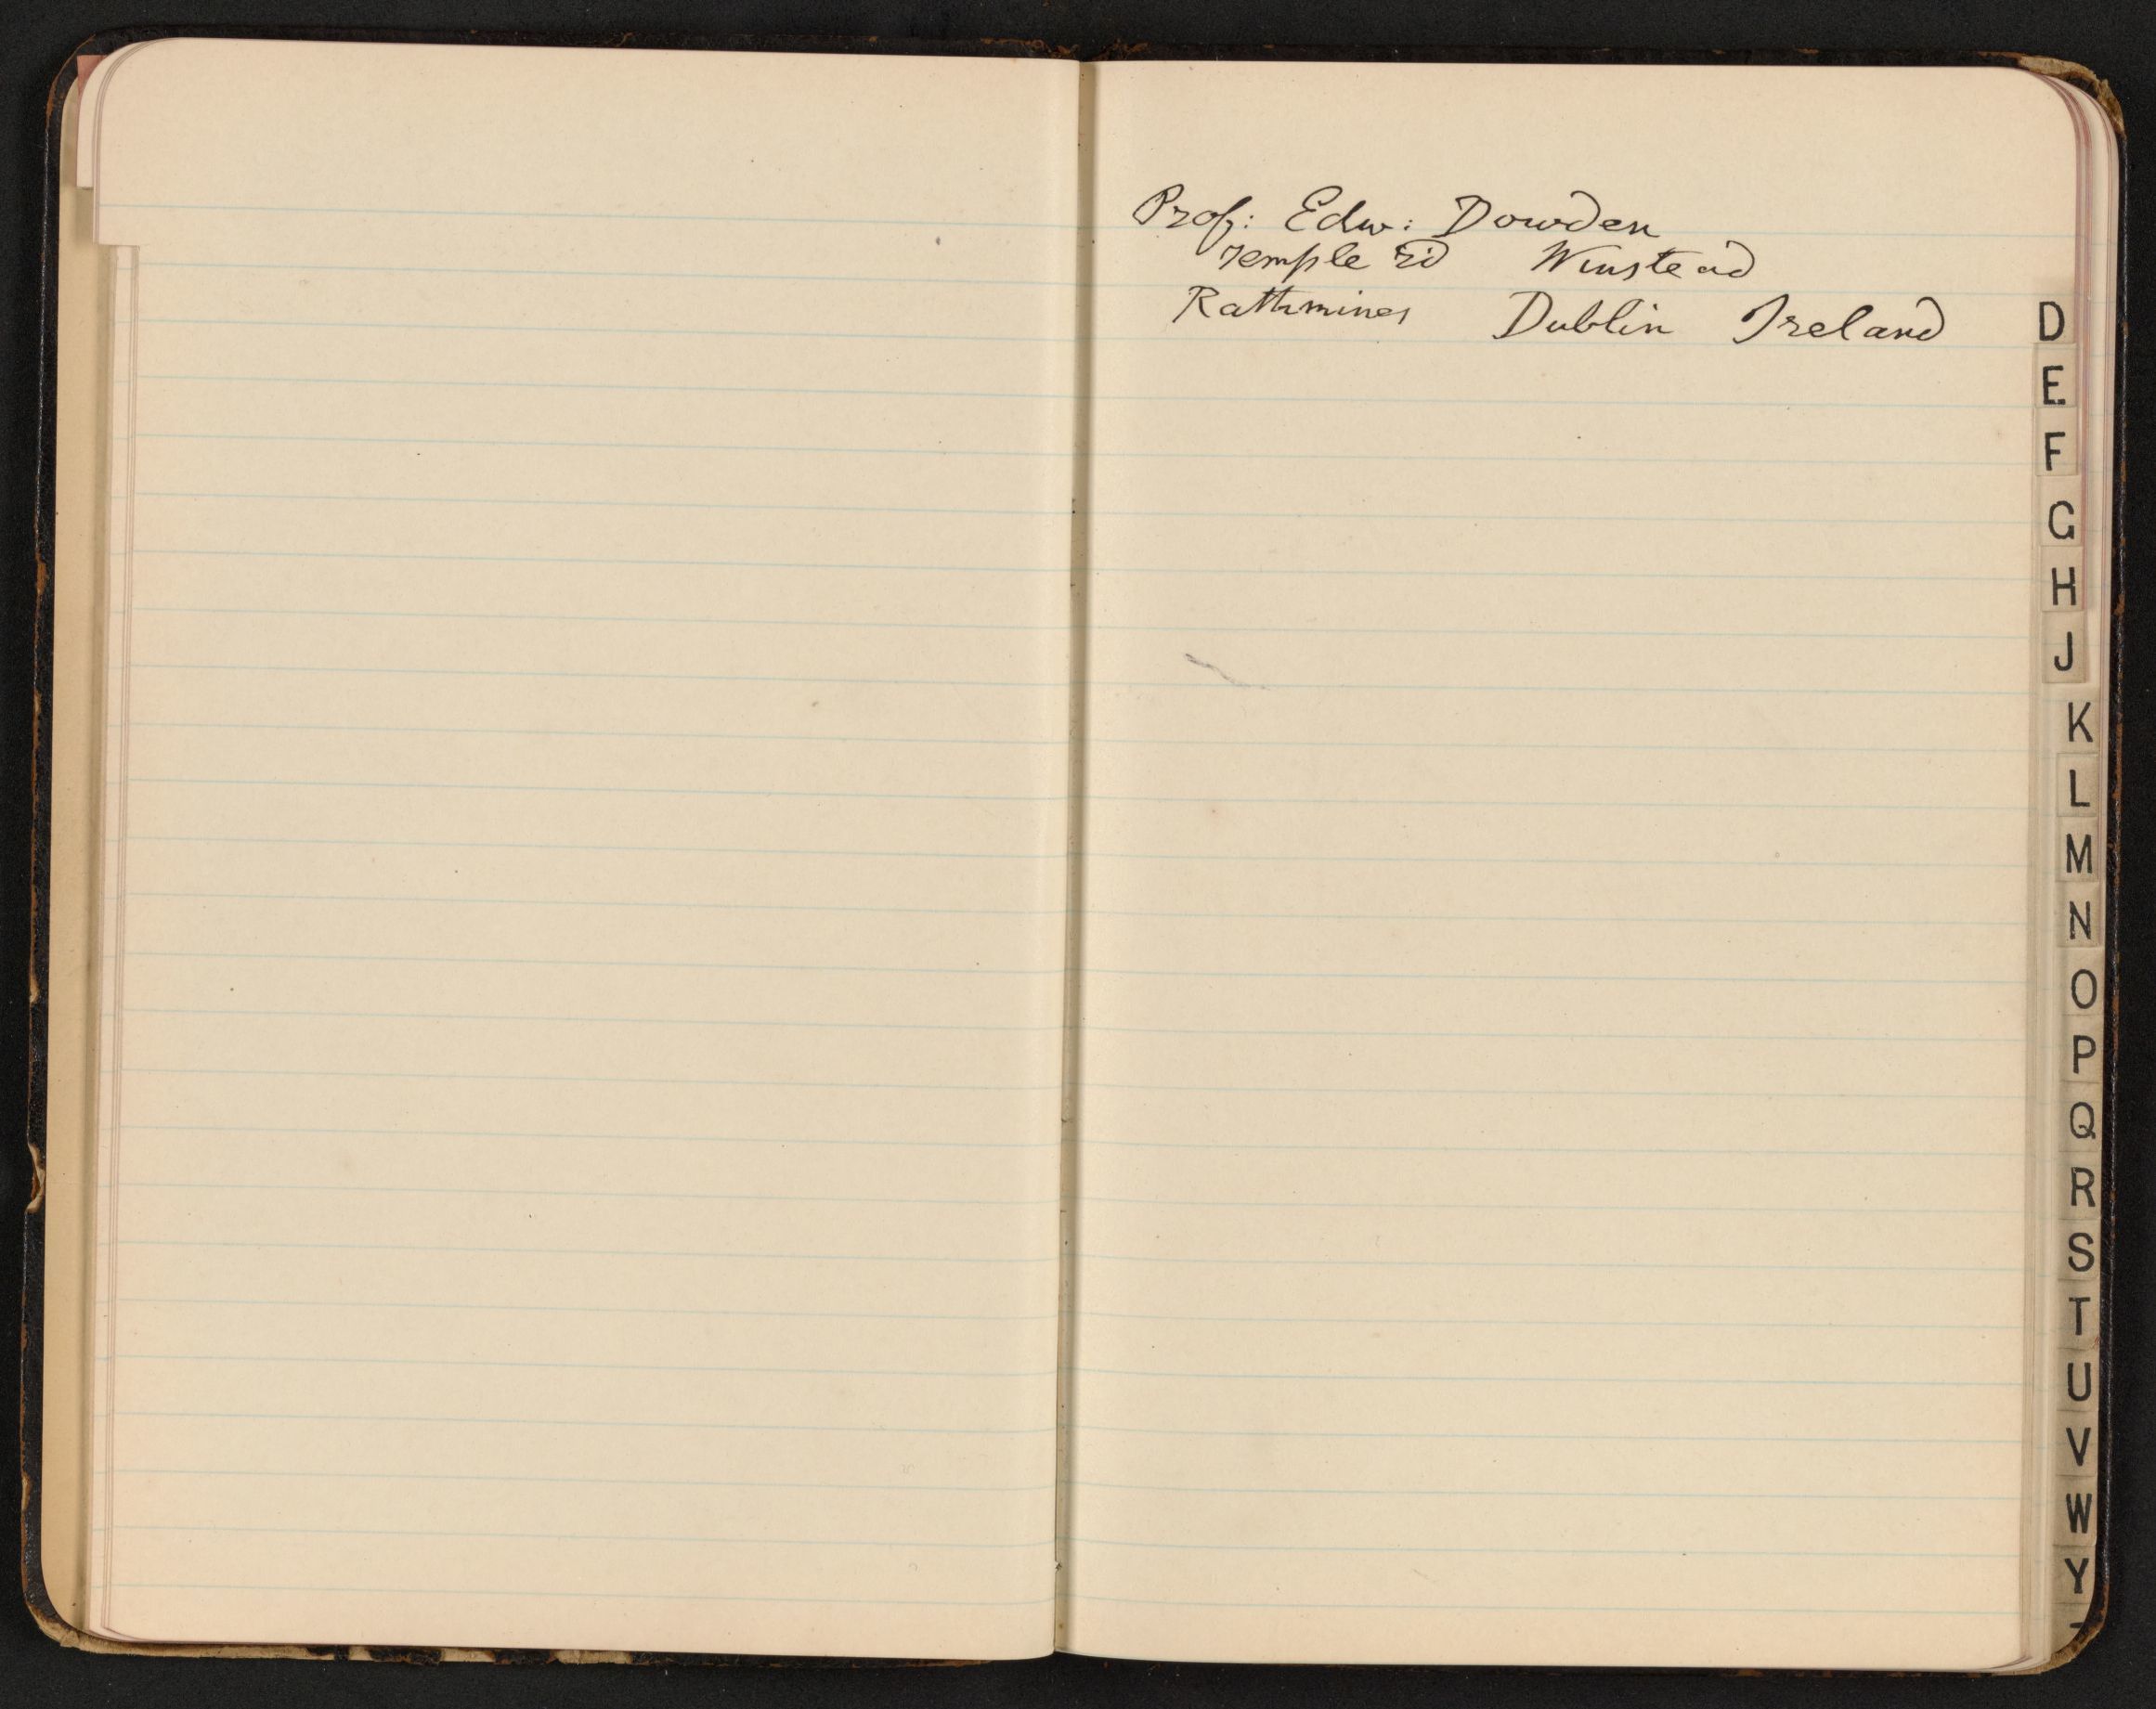 Prof: Edw: Dowden
Temple rd Winstead
Rathmines Dublin Ireland
D
E
F
G
H
J
K
L
M
N
O
P
Q
R
S
T
U
V
W
Y